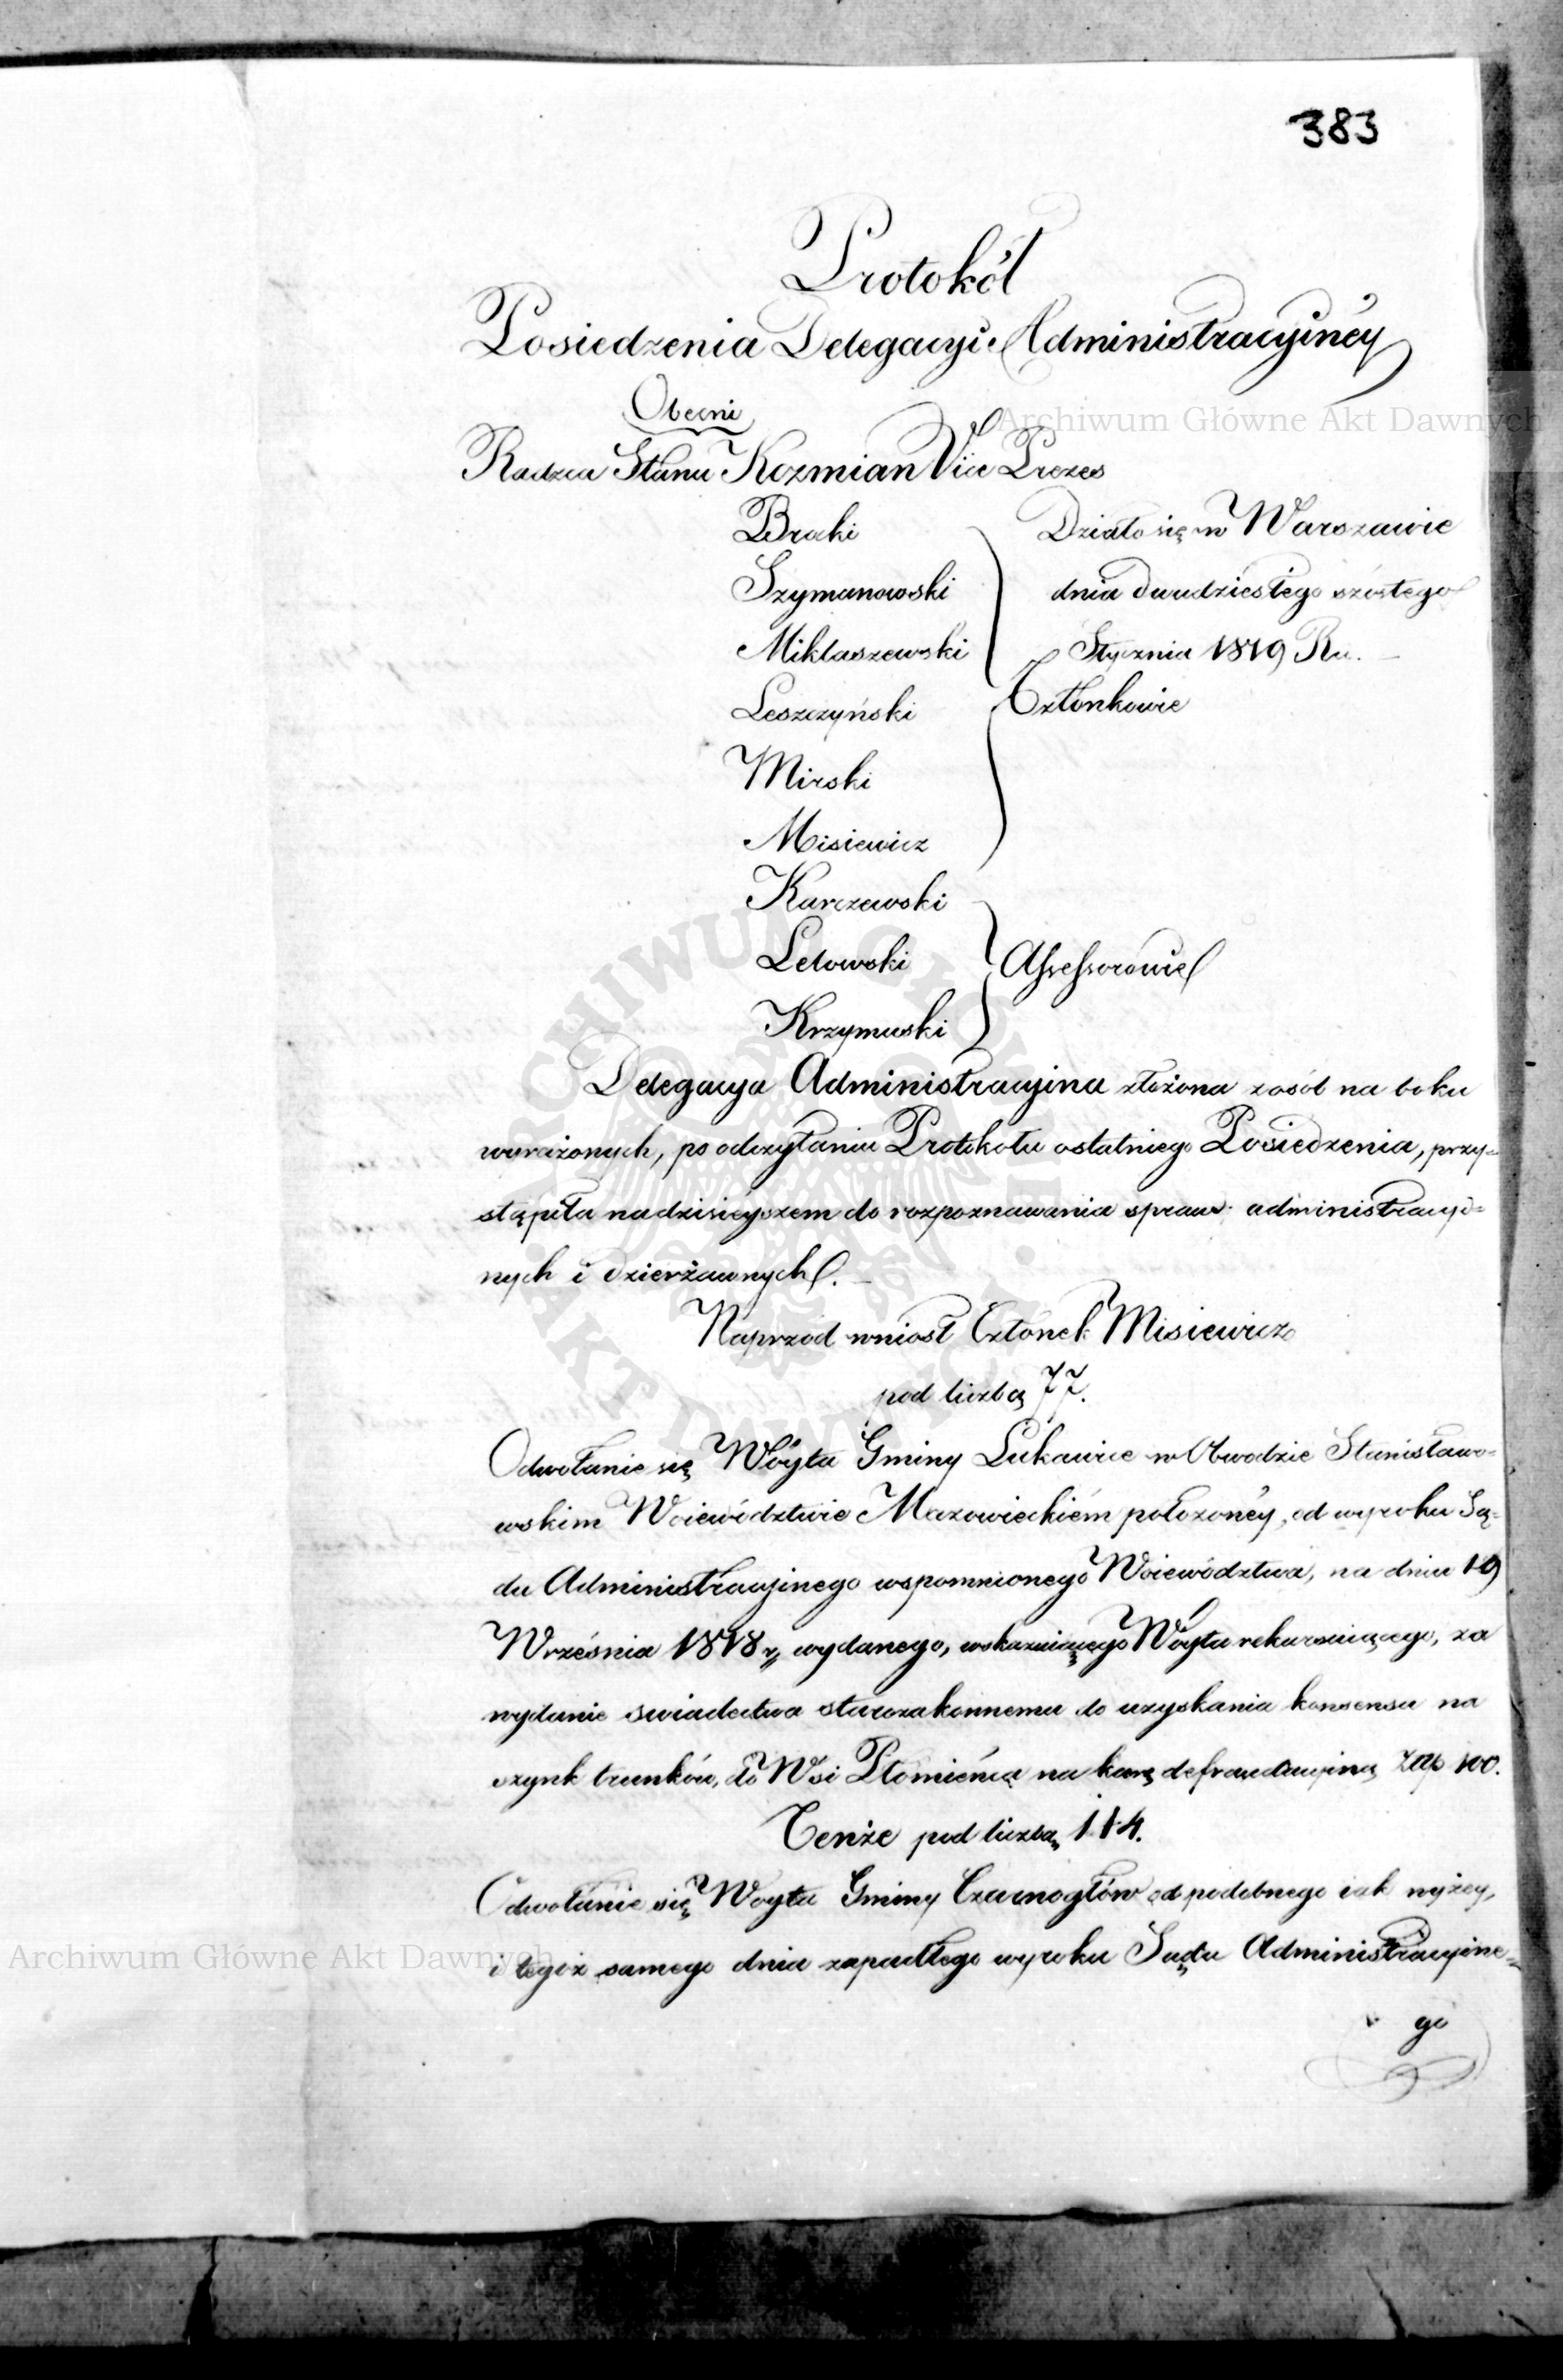 383
Protokół
Posiedzenia Delegacyi Administracyinéy
Obecni
Radzca Stanu Kozmian Vice Prezes
Brocki
Szymanowski
Miklaszewski
Leszczyński
Mirski
Misiewicz
Działo się w Warszawie
dnia dwudziestego szóstego
Stycznia 1819 Ru.
Członkowie
Karczewski
Letowski
Krzymuski
Assessorowie
Delegacya Administracyina złożona z osób na boku
wyrażonych, po odczytaniu Protokołu ostatniego Posiedzenia, przy-
stąpiła na dzisieyszem do rozpoznawania spraw administracyi=
nych i dzierżawnych.
Naprzód wniosł Członek Misiewicz
pod liczbą 77.
Odwołanie się Wóyta Gminy Łukawice w Obwodzie Stanisławo=
wskim Woiewództwie Mazowieckiém położonéy, od wyroku Są=
du Administracyinego wspomnionego Woiewództwa, na dniu 19
Września 1818 r. wydanego, wskazuiącego Wóyta rekursuiącego, za
wydanie swiadectwa starozakonnemu do uzyskania konsensu na
szynk trunków, do Wsi Płomieńca na karę defraudacyiną Złp 100.
Tenże pod liczbą 114.
Odwołanie się Woyta Gminy Czarnogłów od podobnego iak wyżey,
i tegoż samego dnia zapadłego wyroku Sądu Administracyine=
go
Archiwum Główne Akt Dawnych
Archiwum Główne Akt Dawnych
ARCHIWUM GŁÓWNE · AKT DAWNYCH ·